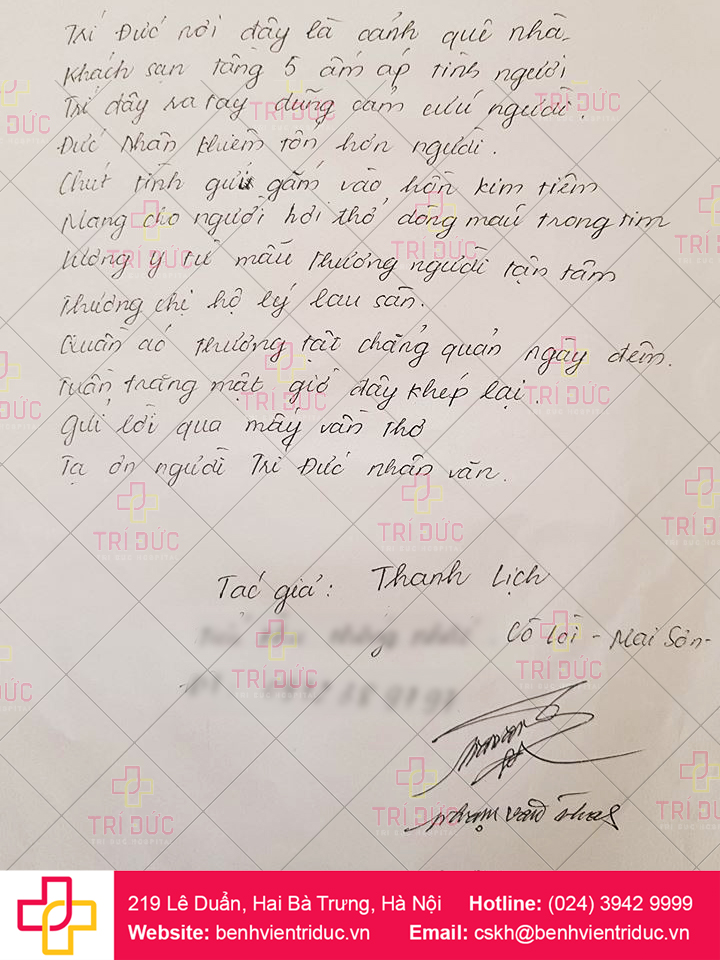 Trí Đức nơi đây là cảnh quê nhà.
Khách sạn tầng 5 ấm áp tình người
Trí đây ra tay dũng cảm cứu người.
Đức Nhân khiêm tốn hơn người.
Chút tình gửi gắm vào hồn kim tiêm
Mang cho người hơi thở dòng máu trong tim
Lương y từ mẫu thương người tận tâm
Thương chị hộ lý lau sàn.
Quần áo thương tật chẳng quản ngày đêm.
Tuần trăng mật giờ đây khép lại.
Gửi lời qua mấy vần thơ
Tạ ơn người Trí Đức nhân văn.
Tác giả: Thanh Lịch
Cò Lòi - Mai Sơn-
Phạm Văn
TRÍ ĐỨC
219 Lê Duẩn, Hai Bà Trưng, Hà Nội Hotline: (024) 3942 9999
Website: benhvientriduc.vn Email: cskh@benhvientriduc.vn